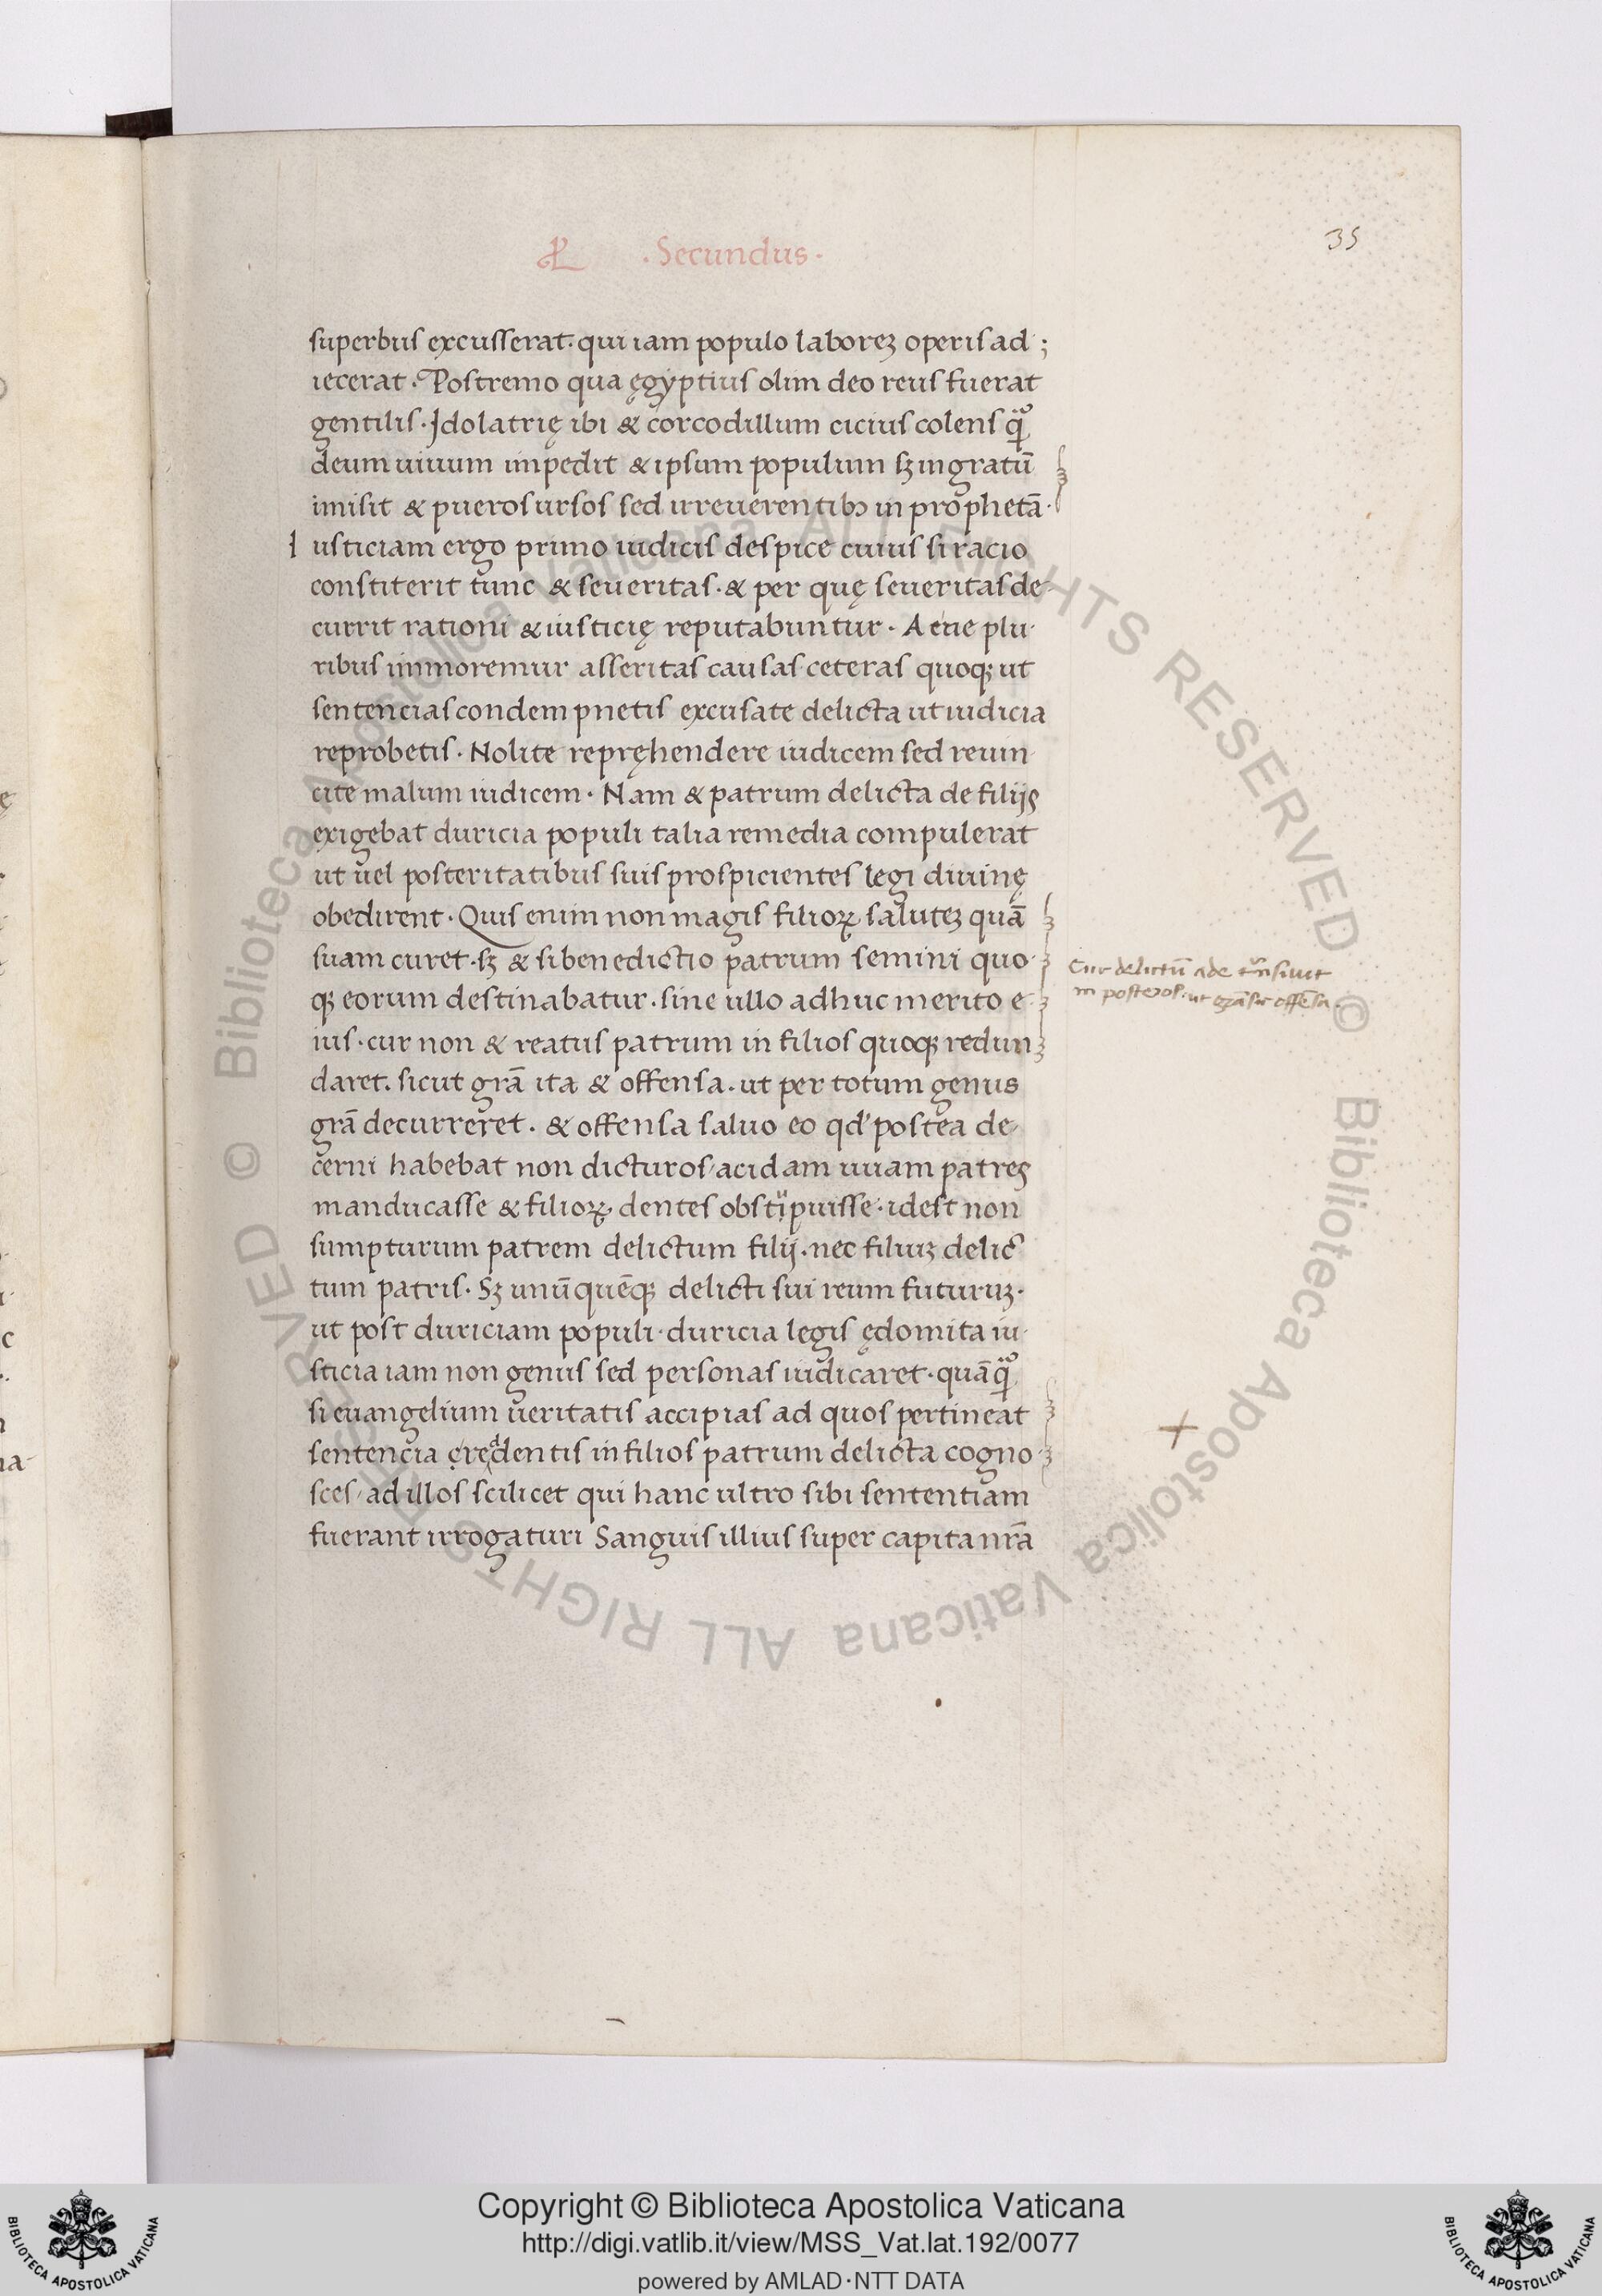 .Secundus.
35
superbus excusserat. qui iam populo laboreꝫ operis ad ;
iecerat. Postremo qua ęgyptius olim deo reus fuerat
gentilis. Idolatrię ibi & corcodillum cicius colens
deum uiuum impedit & ipsum populum sꝫ ingratū
imisit & pueros ursos sed irreuerentibꝫ in prophetā.
Iusticiam ergo primo iudicis despice cuius si racio
constiterit tunc & seueritas. & per quę seueritas de-
currit rationi & iusticię reputabuntur. Ac ne plu-
ribus immoremur asseritas causas ceteras quoqꝫ ut
sentencias condempnetis excusate delicta ut iudicia
reprobetis. Nolite repręhendere iudicem sed reuin-
cite malum iudicem. Nam & patrum delicta de filijs
exigebat duricia populi talia remedia compulerat
ut uel posteritatibus suis prospicientes legi diuinę
obedirent. Quis enim non magis filioꝝ saluteꝫ quā
suam curet. sꝫ & si benedictio patrum semini quo-
qꝫ eorum destinabatur. sine ullo adhuc merito e-
ius. cur non & reatus patrum in filios quoqꝫ redun
daret. sicut grā ita & offensa. ut per totum genus
grā decurreret. & offensa saluo eo qd' postea de-
cerni habebat non dicturos acidam uuam patres
manducasse & filioꝝ dentes obstipuisse. idest non
sumpturum patrem delictum filij. nec filiuꝫ delic
tum patris. Sꝫ unūquēqꝫ delicti sui reum futuruꝫ.
ut post duriciam populi. duricia legis ędomita iu-
sticia iam non genus sed personas iudicaret. quāq̃
si euangelium ueritatis accipias ad quos pertineat
sentencia credentis in filios patrum delicta cogno-
sces, ad illos scilicet qui hanc ultro sibi sententiam
fuerant irrogaturi Sanguis illius super capita nrā
Cur delictū ade trāsiuit
in posteros. ut grā sic offēsa.
© Biblioteca Apostolica Vaticana ALL RIGHTS RESERVED © Biblioteca Apostolica Vaticana ALL RIGHTS RESERVED
Copyright © Biblioteca Apostolica Vaticana
http://digi.vatlib.it/view/MSS_Vat.lat.192/0077
powered by AMLAD·NTT DATA
BIBLIOTECA APOSTOLICA VATICANA
BIBLIOTECA APOSTOLICA VATICANA